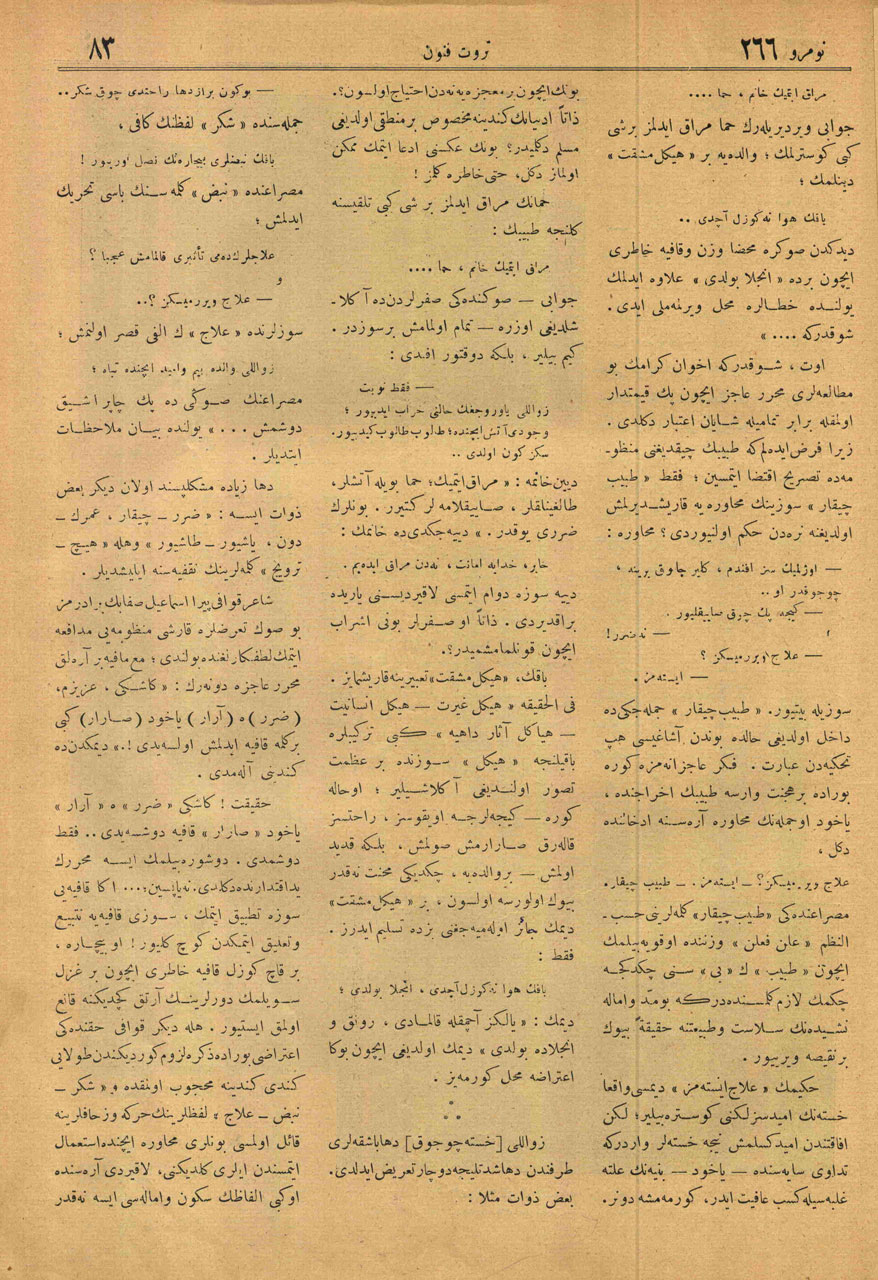 نومرو ٢٦٦
ثروت فنون
٨٣
مراق ایتمیك خانم ، حما ....
جوابی ویردیریله‌رك حما مراق ایدلمز برشی
كبی كوسترلمك ؛ والده‌یه بر « هیكل مشقت »
دینلمك ؛
باقك هوا نه‌كوزل آچدی ..
دیدكدن صوكره محضا وزن وقافیه خاطری
ایچون برده « انجلا بولدی » علاوه ایدلمك
یولنده خطالره محل ویرنمه‌ملی ایدی .
شوقدركه .... »
اوت ، شوقدركه اخوان كرامك بو
مطالعه‌لری محرر عاجز ایچون پك قیمتدار
اولمغله برابر تمامیله شایان اعتبار دكلدی .
زیرا فرض ایده‌لم‌كه طبیبك چیقدیغنی منظو-
مه‌ده تصریح اقتضا ایتمسین ؛ فقط « طبیب
چیقار » سوزینك محاوره یه قاریشدیرلمش
اولدیغنه نره‌دن حكم اولنیوردی؟ محاوره :
— اوزلمیك سز افندم ، كلیر چاوق برینه ،
چوجوقدر او ..
— كیجه پك چوق صایقلیور .
— نه ضرر !
— علاج ویررمیسكز ؟
— ایسته‌مز .
سوزیله بیتیور. « طبیب چیقار » جمله‌جكی‌ده
داخل اولدیغی حالده بوندن آشاغیسی هپ
تحكیه‌دن عبارت . فكر عاجزانه‌مزه كوره
بوراده برهجنت وارسه طبیبك اخراجنده ،
یاخود اوجمله‌نك محاوره آره‌سنه ادخالنده
دكل ،
علاج ویررمیسكز؟ــ ایسته‌مز . ــ طبیب چیقار.
مصراعنده‌كی «طبیب چیقار» كله‌لرنی حسب-
النظم « علن فعلن » وزننده اوقویه‌بیلمك
ایچون « طبیب » ك « بی » سنی چكدكجه
چكمك لازم كلمسنده‌در كه بومد واماله
نشیده‌نك سلاست وطبیعتنه حقیقةً بیوك
بر نقیصه ویرییور .
حكیمك « علاج ایسته‌مز » دیمسی واقعا
خسته‌نك امیدسزلكنی كوستره‌بیلیر ؛ لكن
افاقتندن امید كسلمش نیجه خسته‌لر واردركه
تداوی سایه‌سنده — یاخود — بنیه‌نك علته
غلبه‌سیله كسب عافیت ایدر، كورمه‌مشه دونر.
بونك ایچون بر معجزه‌یه نه‌دن احتیاج اولسون؟.
ذاتاً ادبیاتك كندینه مخصوص بر منطقی اولدیغی
مسلم دكلمیدر؟ بونك عكسنی ادعا ایتمك ممكن
اولماز دكل، حتی خاطره كلمز !
حمانك مراق ایدلمز بر شی كبی تلقیسنه
كلنجه طبیبك :
مراق ایتمیك خانم ، حما ....
جوابی — صوكنده‌كی صفرلردن‌ده آكلا-
شلدیغی اوزره — تمام اولمامش برسوزدر .
كیم بیلیر ، بلكه دوقتور افدی :
— فقط نوبت
زواللی یاوروجغك حالنی خراب ایدییور ؛
وجودی آتش ایچنده ؛ طالوب طالوب كیدییور.
سكز كون اولدی ..
دیین خانمه : « مراق ایتمیك ؛ حما بویله آتشلر،
طالغینلقلر ، صاییقلامه لر كتیرر . بونلرك
ضرری یوقدر. » دییه‌جكدی‌ده خانمك :
خایر، خدایه امانت ، نه‌دن مراق ایده‌یم .
دییه سوزه دوام ایتمسی لاقیردیسنی یاریده
براقدیردی . ذاتاً او صفرلر بونی اشراب
ایچون قونلمامشمیدر؟.
باقك، «هیكل مشقت» تعبیرینه قاریشمایز .
فی الحقیقه « هیكل غیرت — هیكل انسانیت
— هیاكل آثار داهیه » كبی تركیبلره
باقیلنجه « هیكل » سوزنده بر عظمت
تصور اولندیغی آكلاشیلیر ؛ اوحاله
كوره — كیجه‌لرجه اویقوسز ، راحتسز
قاله‌رق صارارمش صولمش ، بلكه قدید
اولمش — بروالده‌یه ، چكدیكی محنت نه‌قدر
بیوك اولورسه اولسون ، بر « هیكل مشقت»
دیمك جائز اوله‌میه‌جغنی بزده تسلیم ایدرز .
فقط :
باقك هوا نه‌كوزل آچدی ، انجلا بولدی ؛
دیمك : « یالكز آچمقله قالمادی ، رونق و
انجلاده بولدی » دیمك اولدیغی ایچون بوكا
اعتراضه محل كورمه‌یز .
*
* *
زواللی [خسته چوجوق] دها باشقه‌لری
طرفندن دها شدتلیجه دوچار تعریض ایدلدی.
بعض ذوات مثلا :
— بوكون برازدها راحتدی چوق شكر ..
جمله‌سنده « شكر » لفظنك كافی ،
باقك نبضلری بیچاره‌نك نصل اورییور !
مصراعنده « نبض » كله‌سنك باسی تحریك
ایدلمش ؛
علاجلرك‌ده‌می تأثیری قالمامش عجبا ؟
و
— علاج ویررمیسكز ؟..
سوزلرنده « علاج » ك الفی قصر اولنمش ؛
زواللی والده بیم وامید ایچنده تباه ؛
مصراعنك صوكی ده پك چاپراشیق
دوشمش ... » یولنده بیان ملاحظات
ایتدیلر .
دها زیاده مشكلپسند اولان دیگر بعض
ذوات ایسه : « ضرر ــ چیقار ، عمرك ــ
دون ، یاشیور ــ طاشیور » وهله « هیچ ــ
ترویج » كله‌لرینك تقفیه‌سنه ایلیشدیلر .
شاعر قوافی پیرا اسماعیل صفابك برادرمز
بو صوك تعرضلره قارشی منظومه‌یی مدافعه
ایتمك لطفكارلغنده بولندی ؛ مع‌مافیه بر آره‌لق
محرر عاجزه دونه‌رك : « كاشكی ، عزیزم،
(ضرر) ه (آرار) یاخود (صارار) كبی
بركله قافیه ایدلمش اولسه‌یدی !.» دیمكدن‌ده
كندینی آله‌مدی .
حقیقت ! كاشكی « ضرر » ه « آرار »
یاخود « صارار » قافیه دوشه‌یدی .. فقط
دوشمدی . دوشوره‌بیلمك ایسه محررك
ید اقتدارنده دكلدی. نه یاپسین؛... اكا قافیه‌یی
سوزه تطبیق ایتمك ، سوزی قافیه‌یه تتبیع
وتعلیق ایتمكدن كوچ كلیور! او بیچاره ،
بر قاچ كوزل قافیه خاطری ایچون بر غزل
سویلمك دورلرینك آرتق كچدیكنه قانع
اولمق ایستیور . هله دیگر قوافی حقنده‌كی
اعتراضی بوراده ذكره لزوم كوردیكندن طولایی
كندی كندینه محجوب اولمقده و « شكر ــ
نبض ــ علاج » لفظلرینك حركه وزحافلرینه
قائل اولمسی بونلری محاوره ایچنده استعمال
ایتمسندن ایلری كلدیكنی، لاقیردی آره‌سنده
اوكبی الفاظك سكون واماله‌سی ایسه نه‌قدر